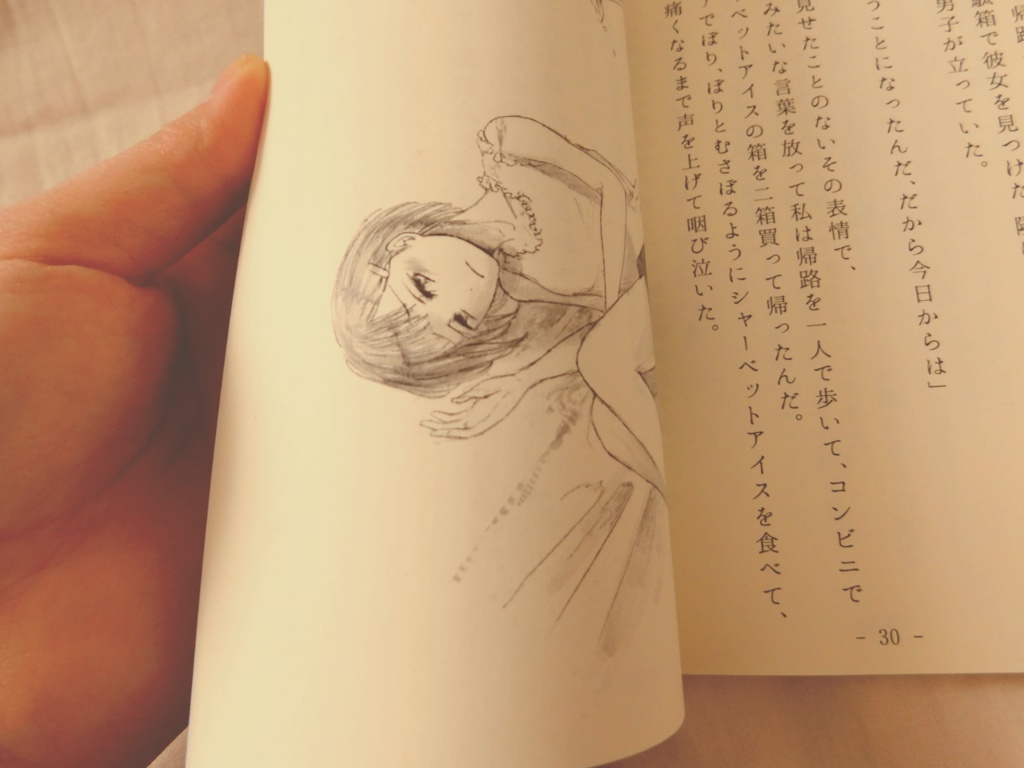 駄箱で彼女を見つけた
男子が立っていた。
うことになったんだ、だから今日からは」
見せたことのないその表情で、
みたいな言葉を放って私は帰路を一人で歩いて、コンビニで
ベットアイスの箱を二箱買って帰ったんだ。
でぼり、ぼりとむさぼるようにシャーベットアイスを食べて、
痛くなるまで声を上げて咽び泣いた。
- 30 -